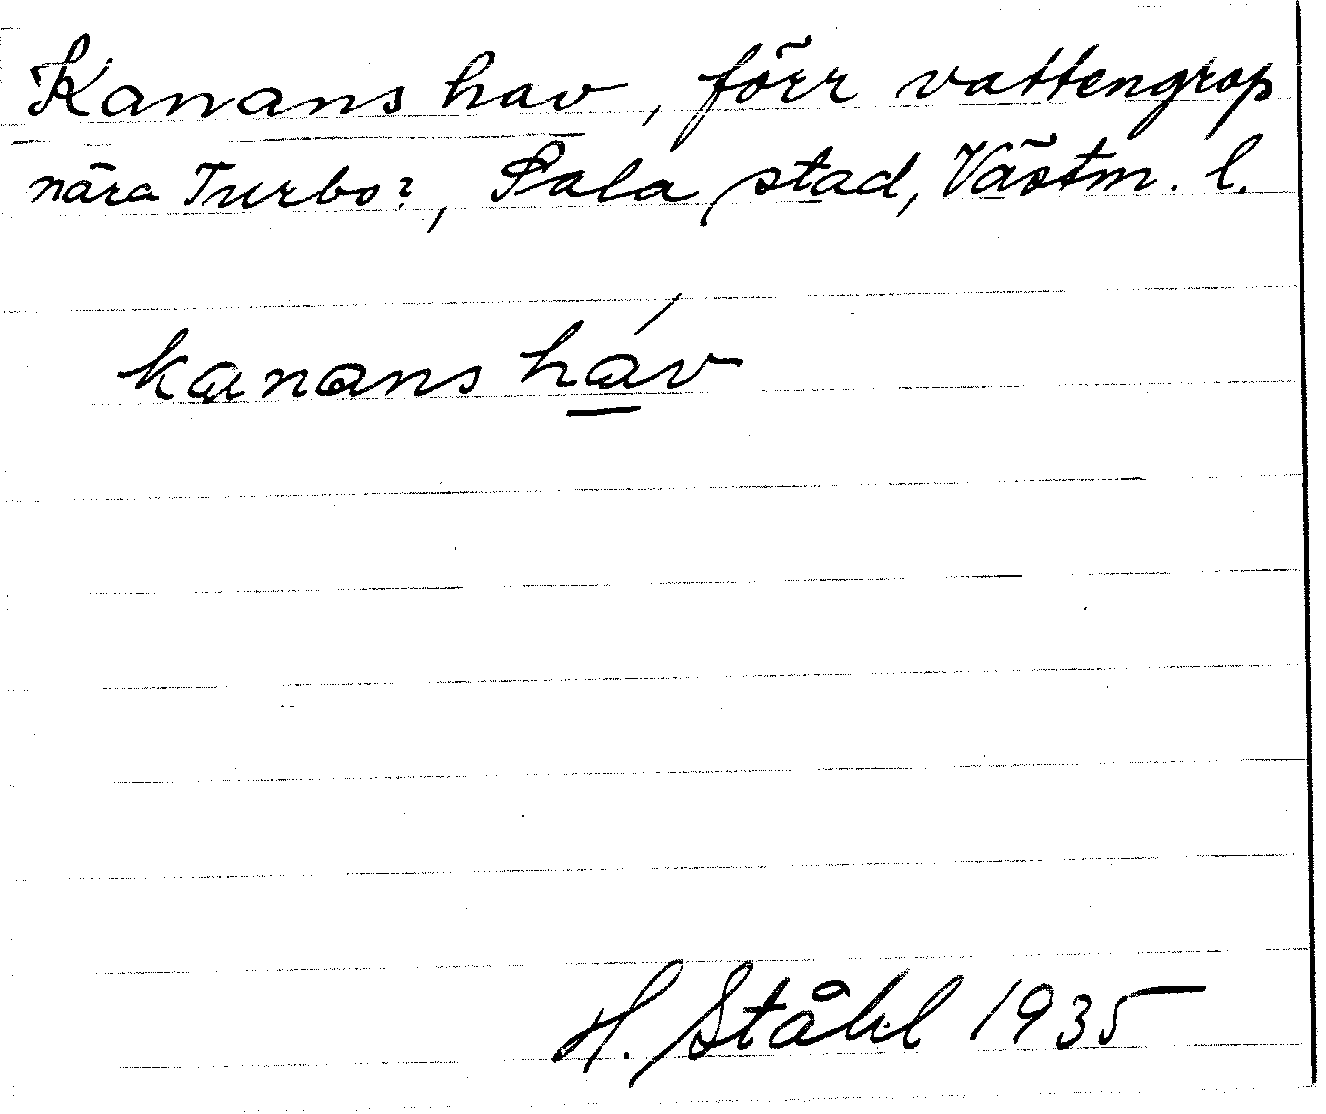 Kanans hav, förr vattengrop
nära Turbo?, Sala stad, Västm. l.
kanans háv
H. Ståhl 1935